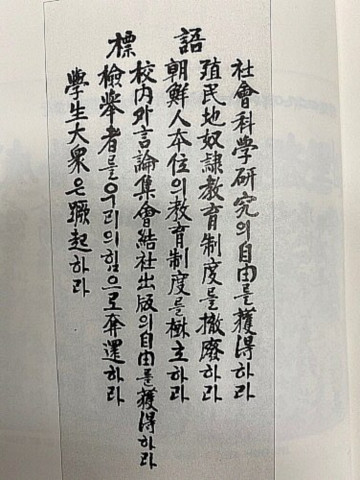 標語
社會科学研究의自由를獲得하라
殖民地奴隷教育制度를撤廢하라
朝鮮人本位의教育制度를樹立하라
校內外言論集會結社出版의自由를獲得하라
檢擧者를우리의힘으로奪還하라
學生大衆은蹶起하라